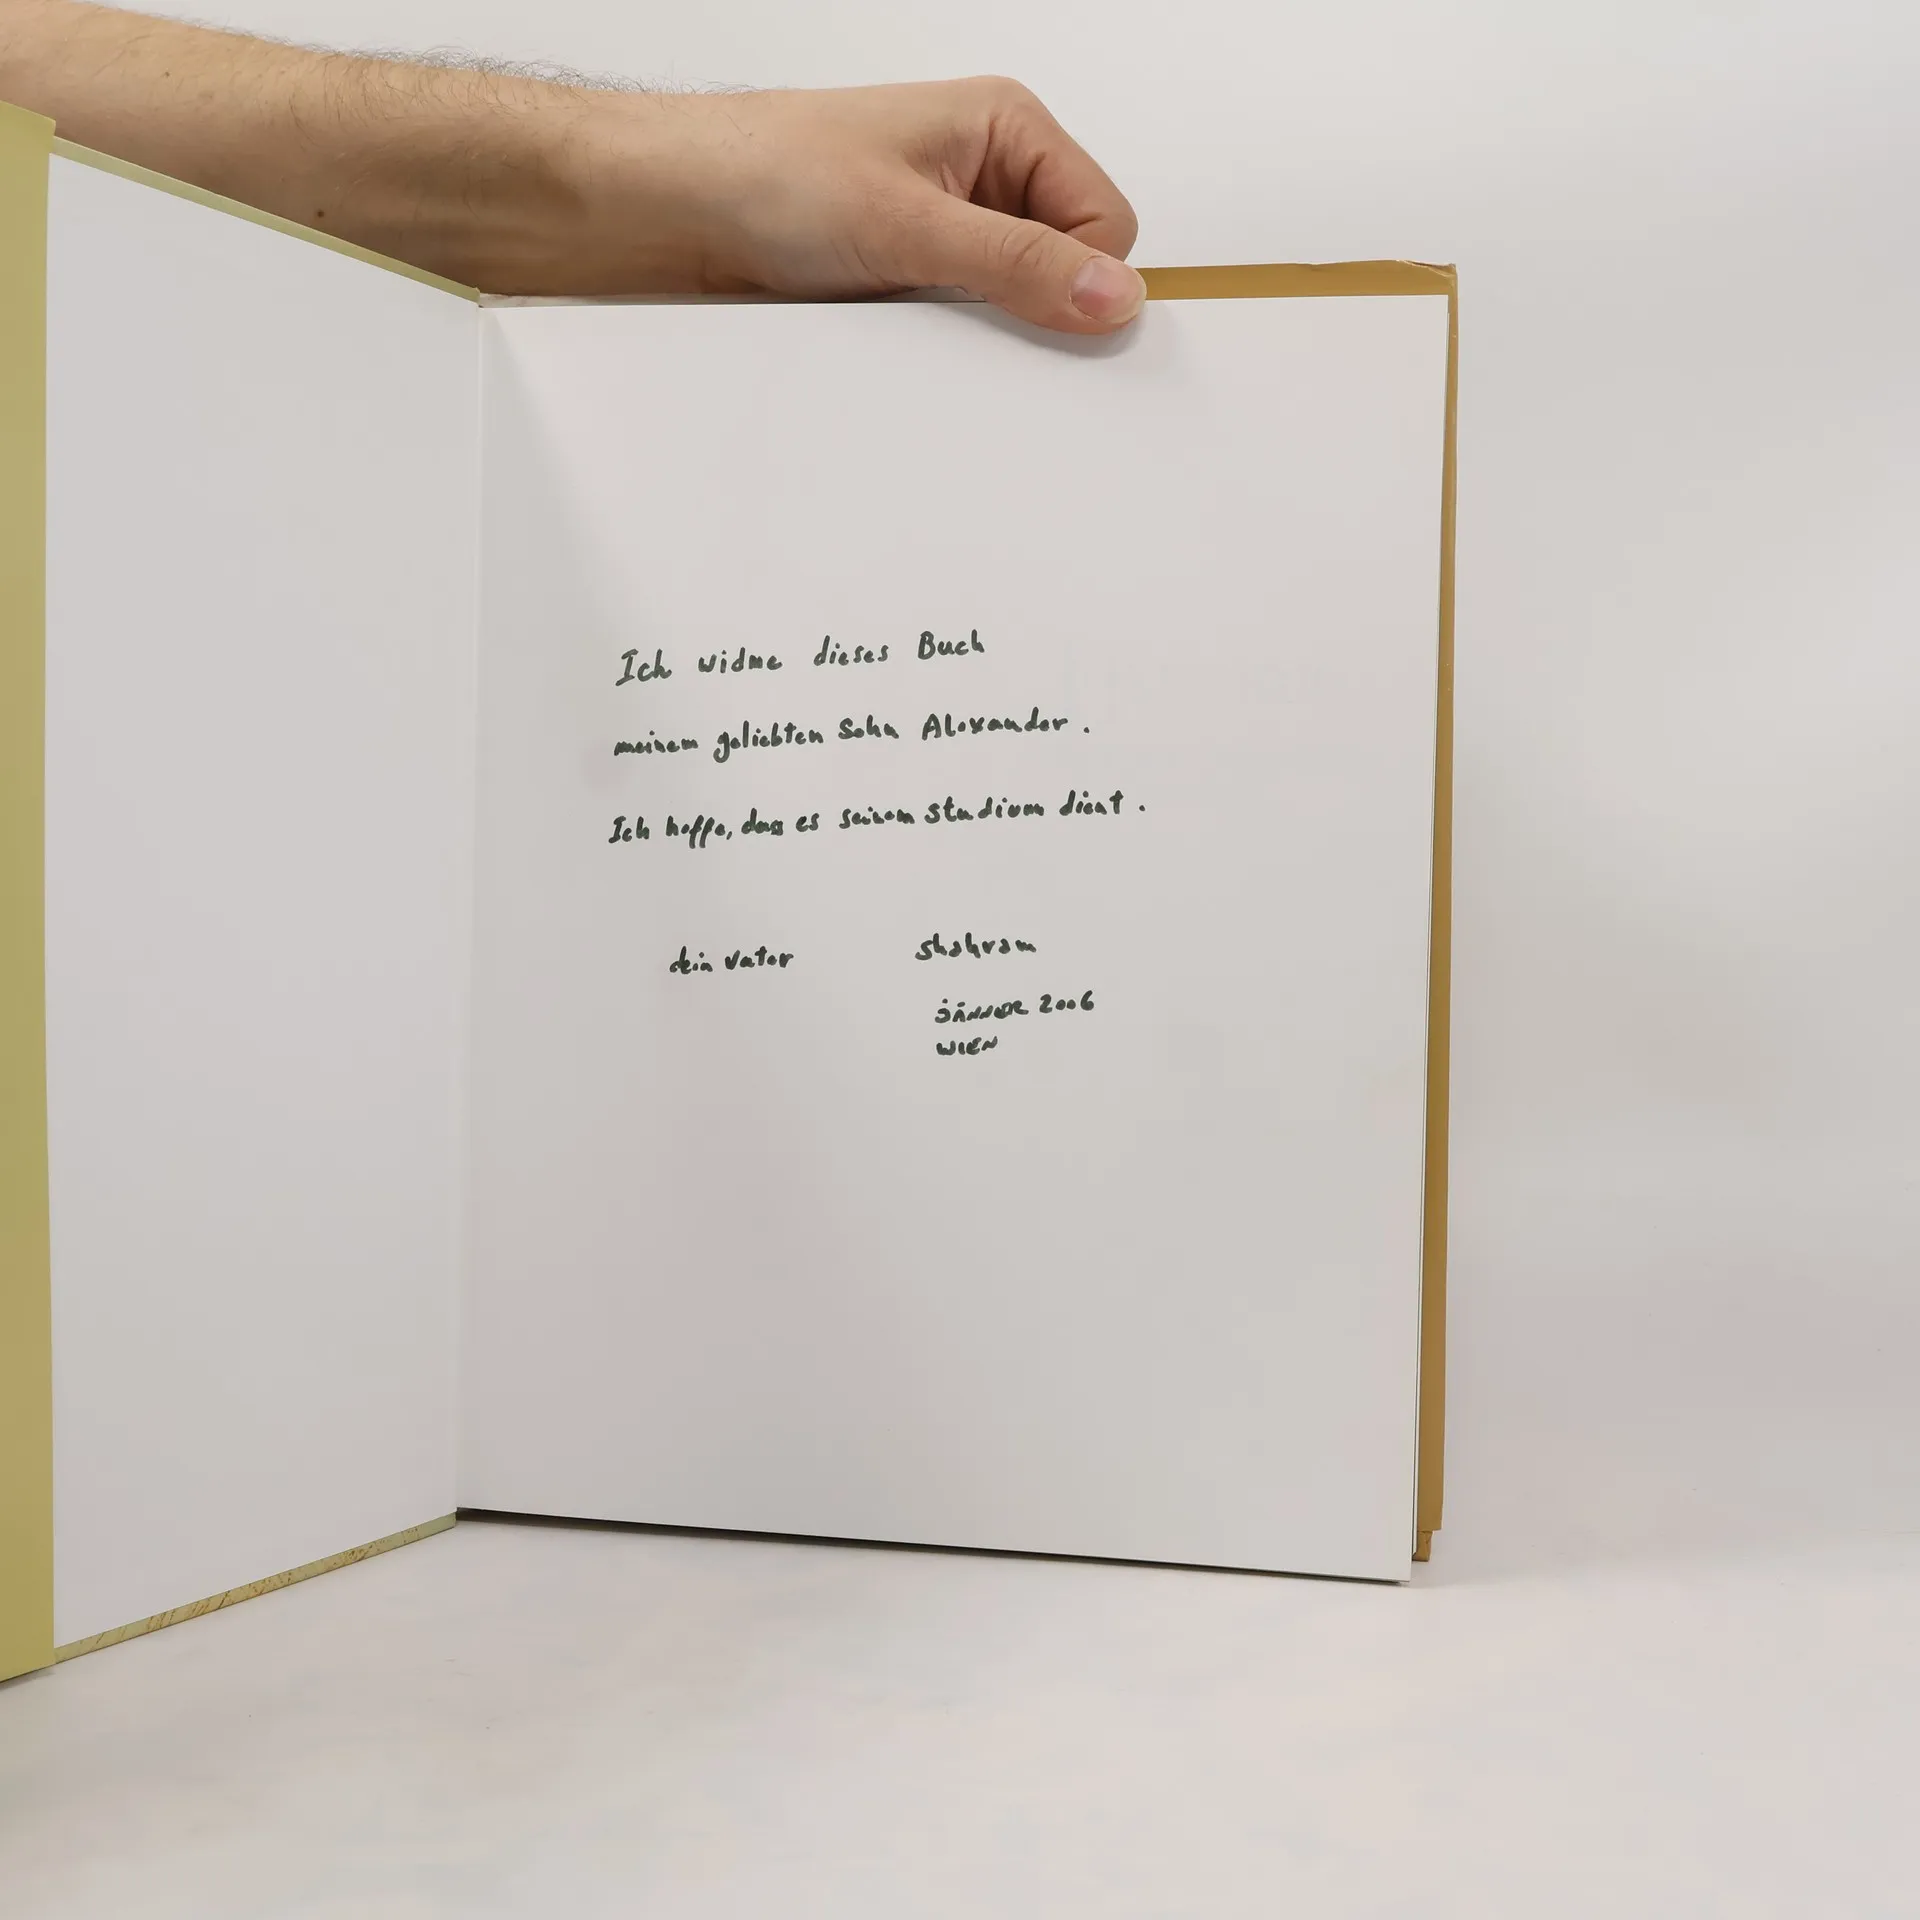 Ich widme dieses Buch
meinem geliebten Sohn Alexander.
Ich hoffe, dass es seinem Studium dient.
dein Vater Shahram
JÄNNER 2006
WIEN